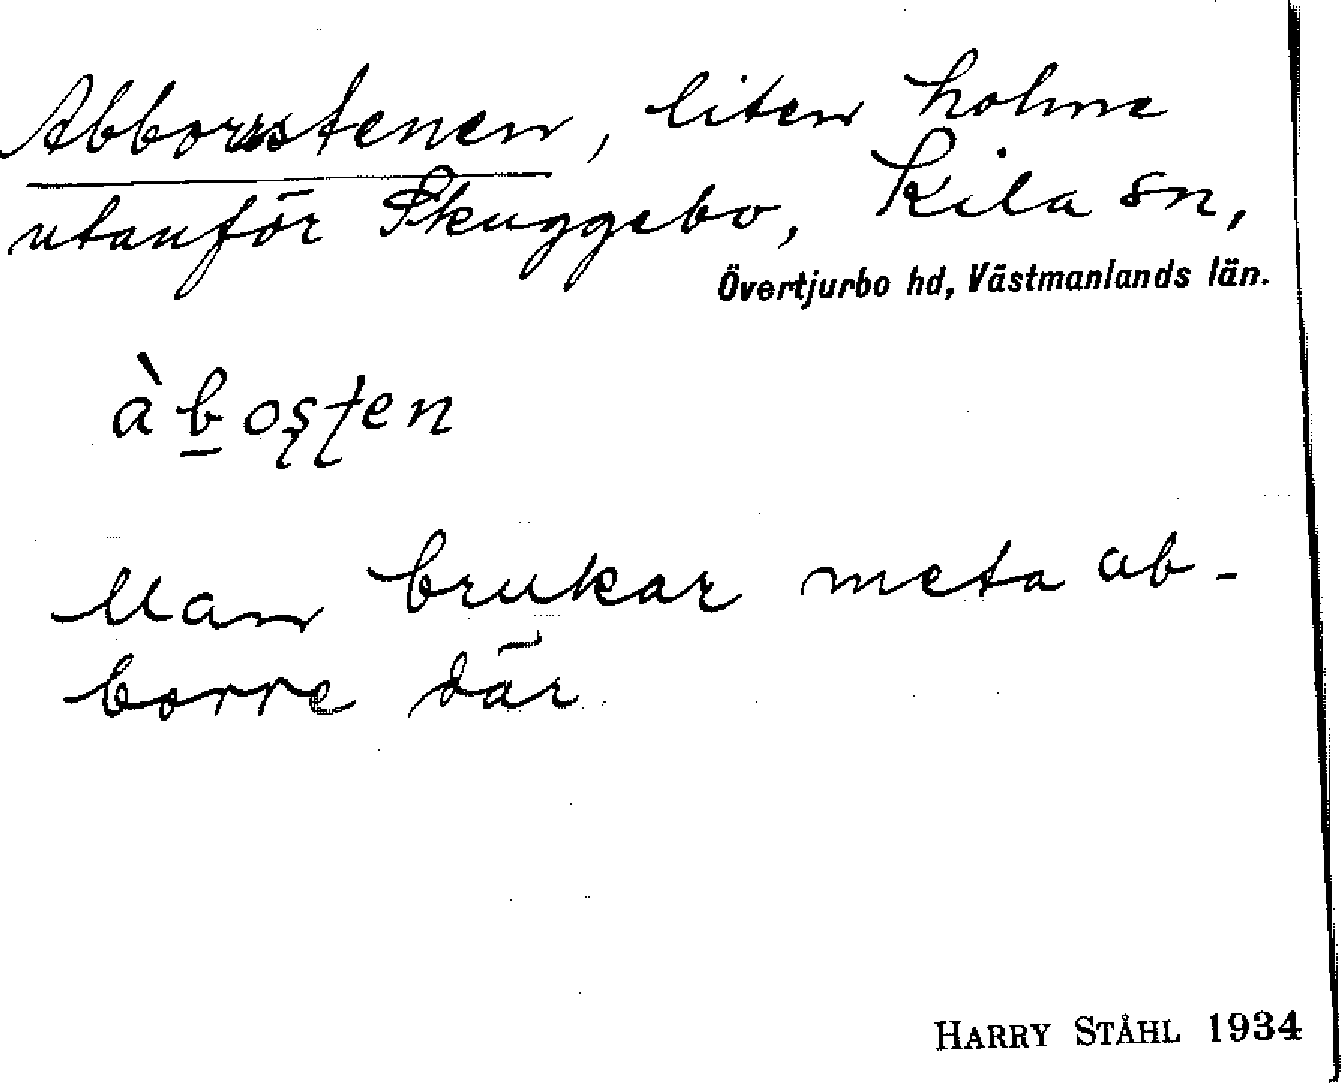 Abborrstenen, liten holme
utanför Skuggebo, Kila sn,
Övertjurbo hd, Västmanlands län.
àb̲oʂʈen
Man brukar meta ab-
borre där
HARRY STÅHL 1934